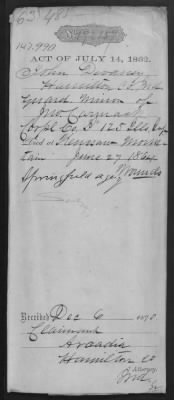 147.990
ACT OF JULY 14, 1862.
John Devaney
Hamilton Co Ind
Guard Minor of
Jno. Carmack
Corpl Co. D 125 Ills. Inf
Died at Kennesaw Moun-
tain June 27 1864
Springfield agcy Wounds
Received Dec 6 1870
Claimant
Arcadia
Hamilton Co
Attorney.
Ind.